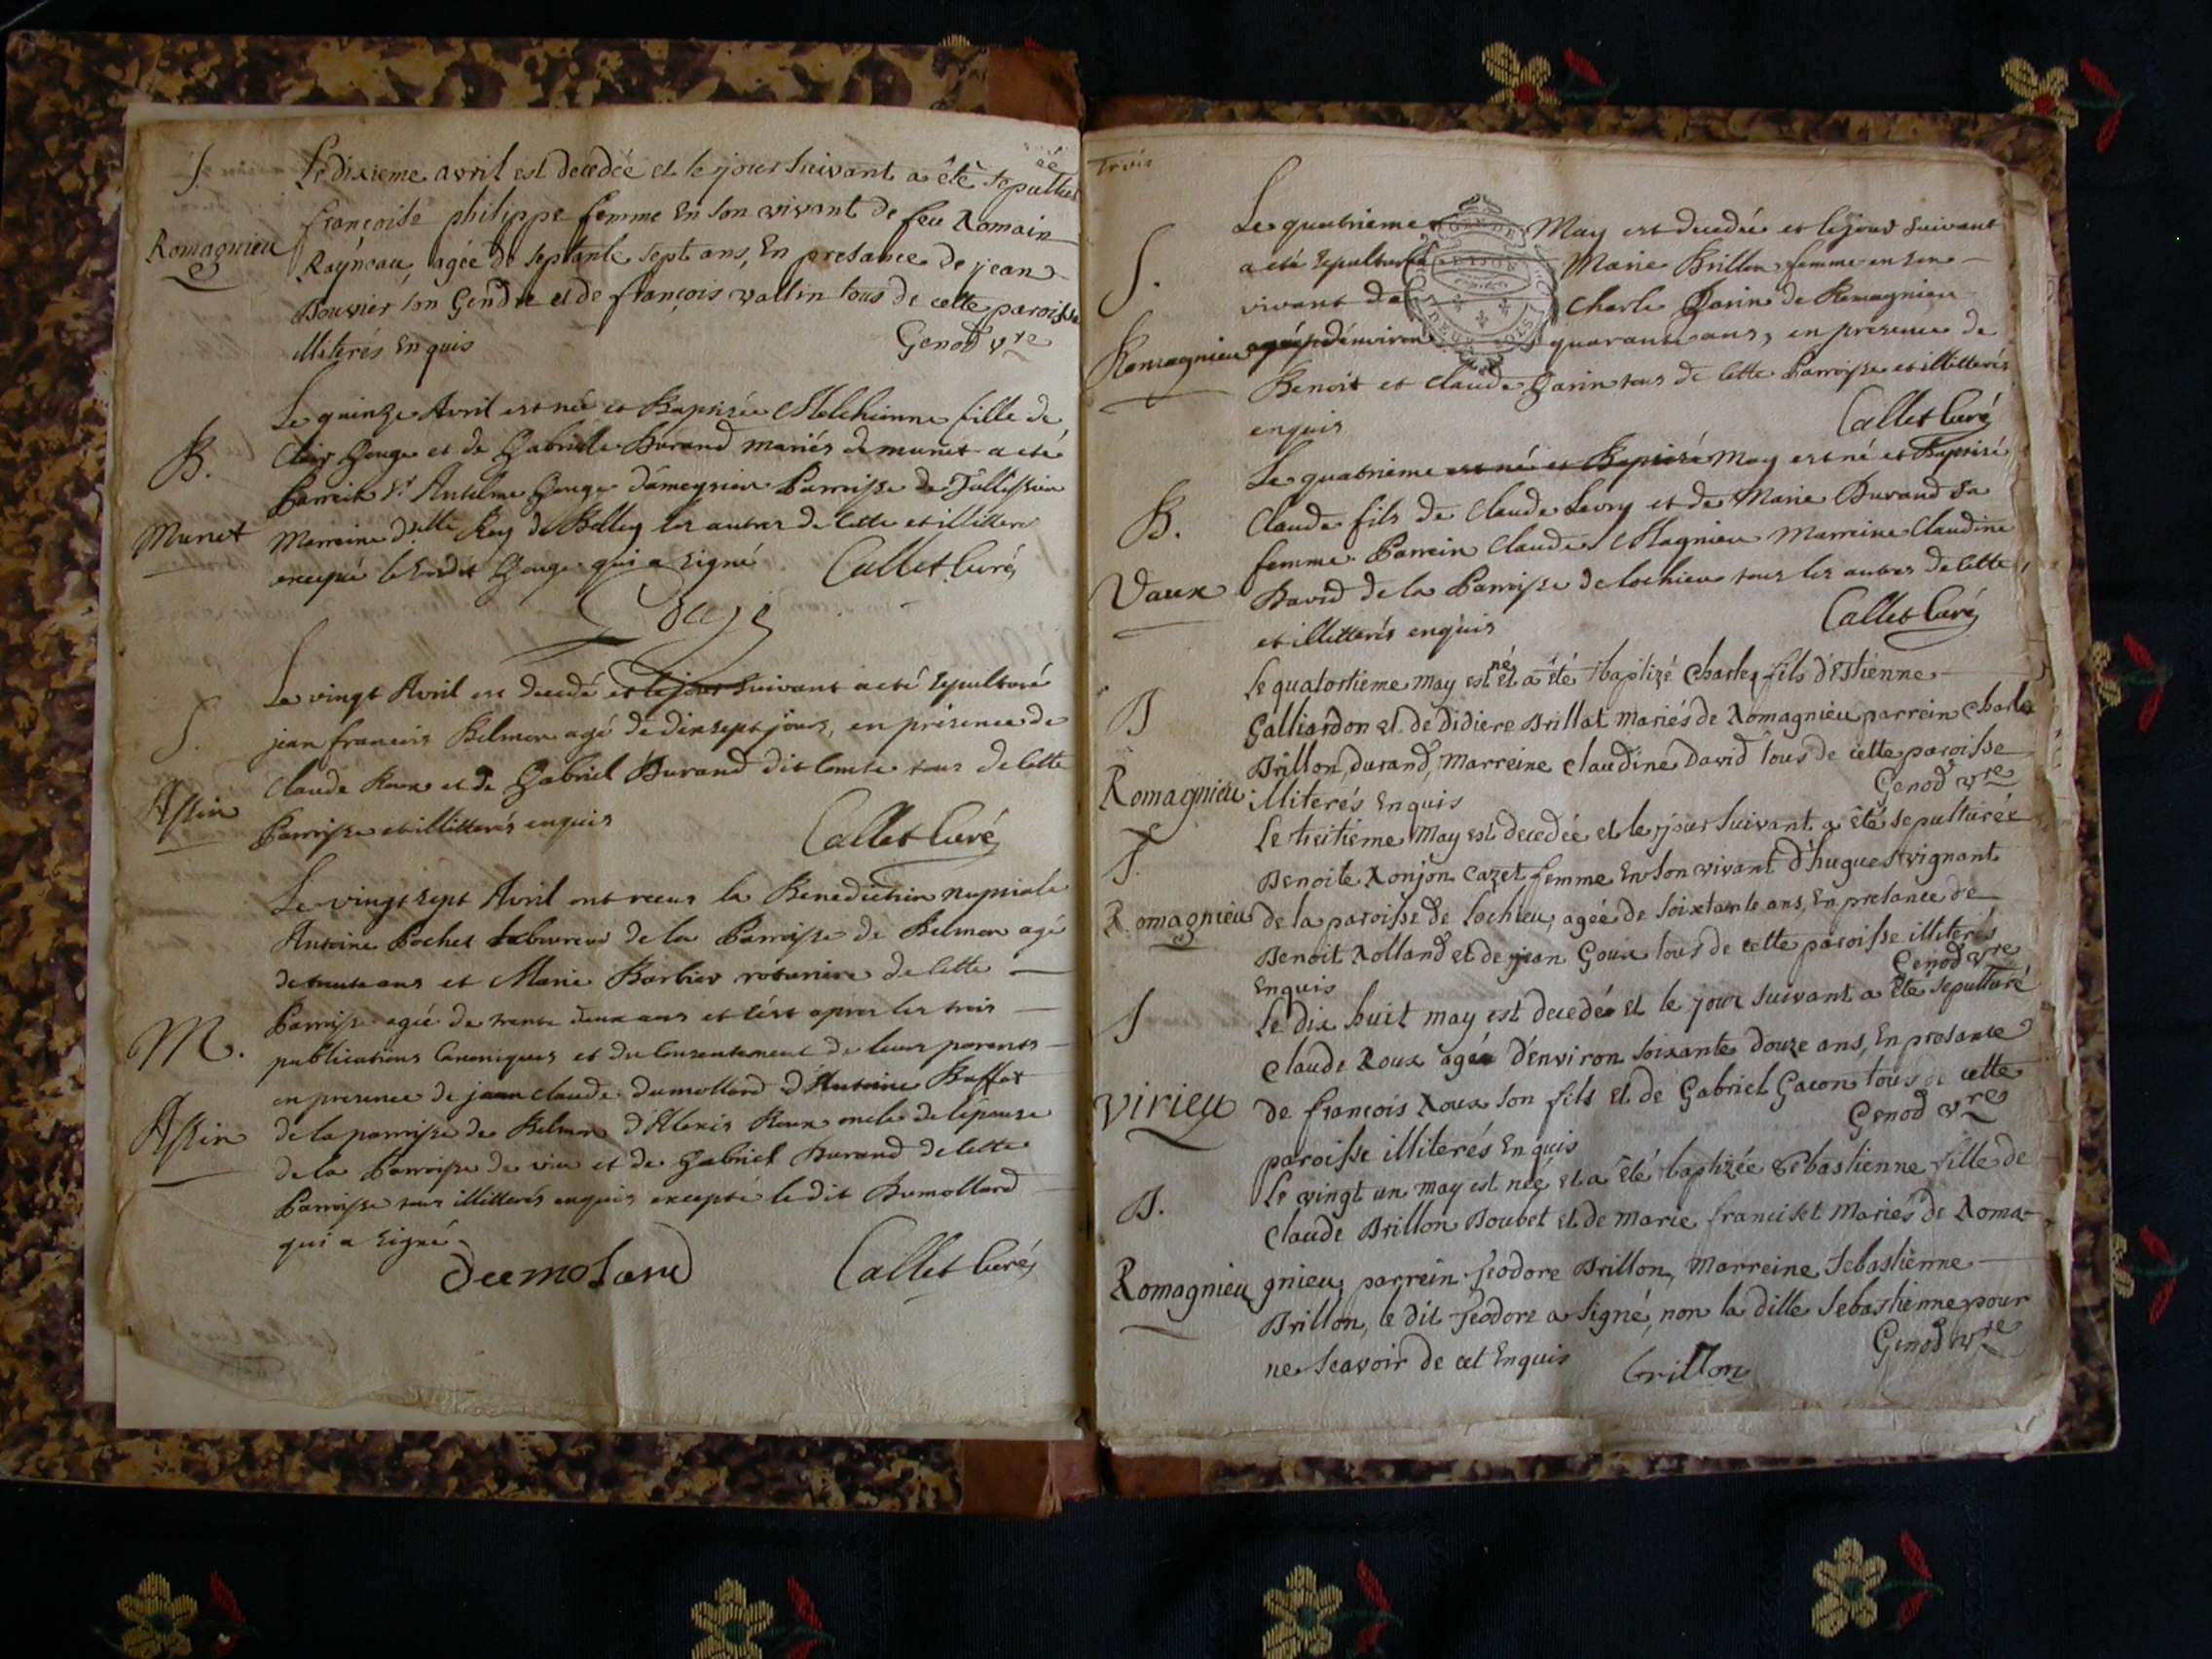 S.
Romagnieu
Le dixieme avril est decedée et le jour suivant a êtê sepulturée
françoise philippe femme En son vivant de feu Romain
Rayneau, agée de septante sept ans, En presance de jean
Bouvier son Gendre et de françois vallin tous de cette paroisse
illiterés Enquis
Genod vre
B.
Munet
Le quinze Avril est née et Baptisée Melchionne fille de
Clair Gouge et de Gabrielle Burand mariés de munet a eté
Parrein Sr Anselme Gouge d'ameysieu Parroisse de Tallissieu
Marreine delle Rey de Belley les autres de Cette et illitteré
excepté le susdit Gouge qui a signé
Callet Curé
S.
Assin
Le vingt Avril est decedé et le jour suivant a eté sepulturé
jean francois Belmon agé de dixsept jours, en présence de
Claude Roux et de Gabriel Burand dit Comte tous de Cette
Parroisse et illitterés enquis
Callet Curé
M.
Assin
Le vingt sept Avril ont receus la Benediction nuptiale
Antoine Pochet laboureur de la Parroisse de Belmon agé
de trente ans et Marie Barbier roturiere de Cette
Parroisse agée de trente deux ans et c'ést apres les trois
publications Canoniques et du Consentement de leurs parents
en presence de jean claude dumollard d'Antoine Buffat
de la parroisse de Belmon d'Alexis Roux oncle de l'épouse
de la Parroisse de vieu et de Gabriel Burand de Cette
Parroisse tous illitterés enquis excepté le dit Dumollard
qui a signé
dumolard
Callet Curé
Trois
S.
Romagnieu
Le quatrieme May est decedée et le jour suivant
a eté sepulturée Marie Brillon femme en son
vivant de Charle Garin de Romagnieu
agée d'environ quarante ans, en presence de
Benoit et Claude Garin tous de Cette Parroisse et illitterés
enquis
Callet Curé
B.
Vaux
Le quatrieme est né et Baptisé May est né et Baptisé
Claude fils de Claude Levry et de Marie Burand Sa
femme Parrein Claude Magnieu Marreine Claudine
David de la Parroisse de lochieu tous les autres de Cette
et illitterés enquis
Callet Curé
B
Romagnieu
Le quatortieme may est né et a êté baptizé Charles fils d'Estienne
Galliardon et de Didiere Brillat mariés de Romagnieu parrein Charle
Brillon durand, Marreine claudine David tous de cette paroisse
illiterés Enquis
Genod vre
S.
Romagnieu
Le treitième May est decedée et le jour suivant a êté sepulturée
Benoite Ronjon Cazet femme En son vivant d'hugues vignant
de la paroisse de lochieu, agée de soixtante ans, En presance de
Benoit Rolland et de jean Goux tous de cette paroisse illiterés
Enquis
Genod vre
S
virieu
Le dix huit may est decedé et le jour suivant a êté sepulturé
Claude Roux agée d'environ soixante douze ans, En presance
de François Roux son fils et de Gabriel Gacon tous de cette
paroisse illiterés Enquis
Genod vre
B.
Romagnieu
Le vingt un may est née et a êté baptizée Sébastienne fille de
Claude Brillon Boubet et de marie franciset Mariés de Roma-
gnieu, parrein Feodore Brillon, Marreine Sebastienne
Brillon, le dit Feodore a signé, non la ditte Sebastienne pour
ne scavoir de cet Enquis
brillon
Genod vre